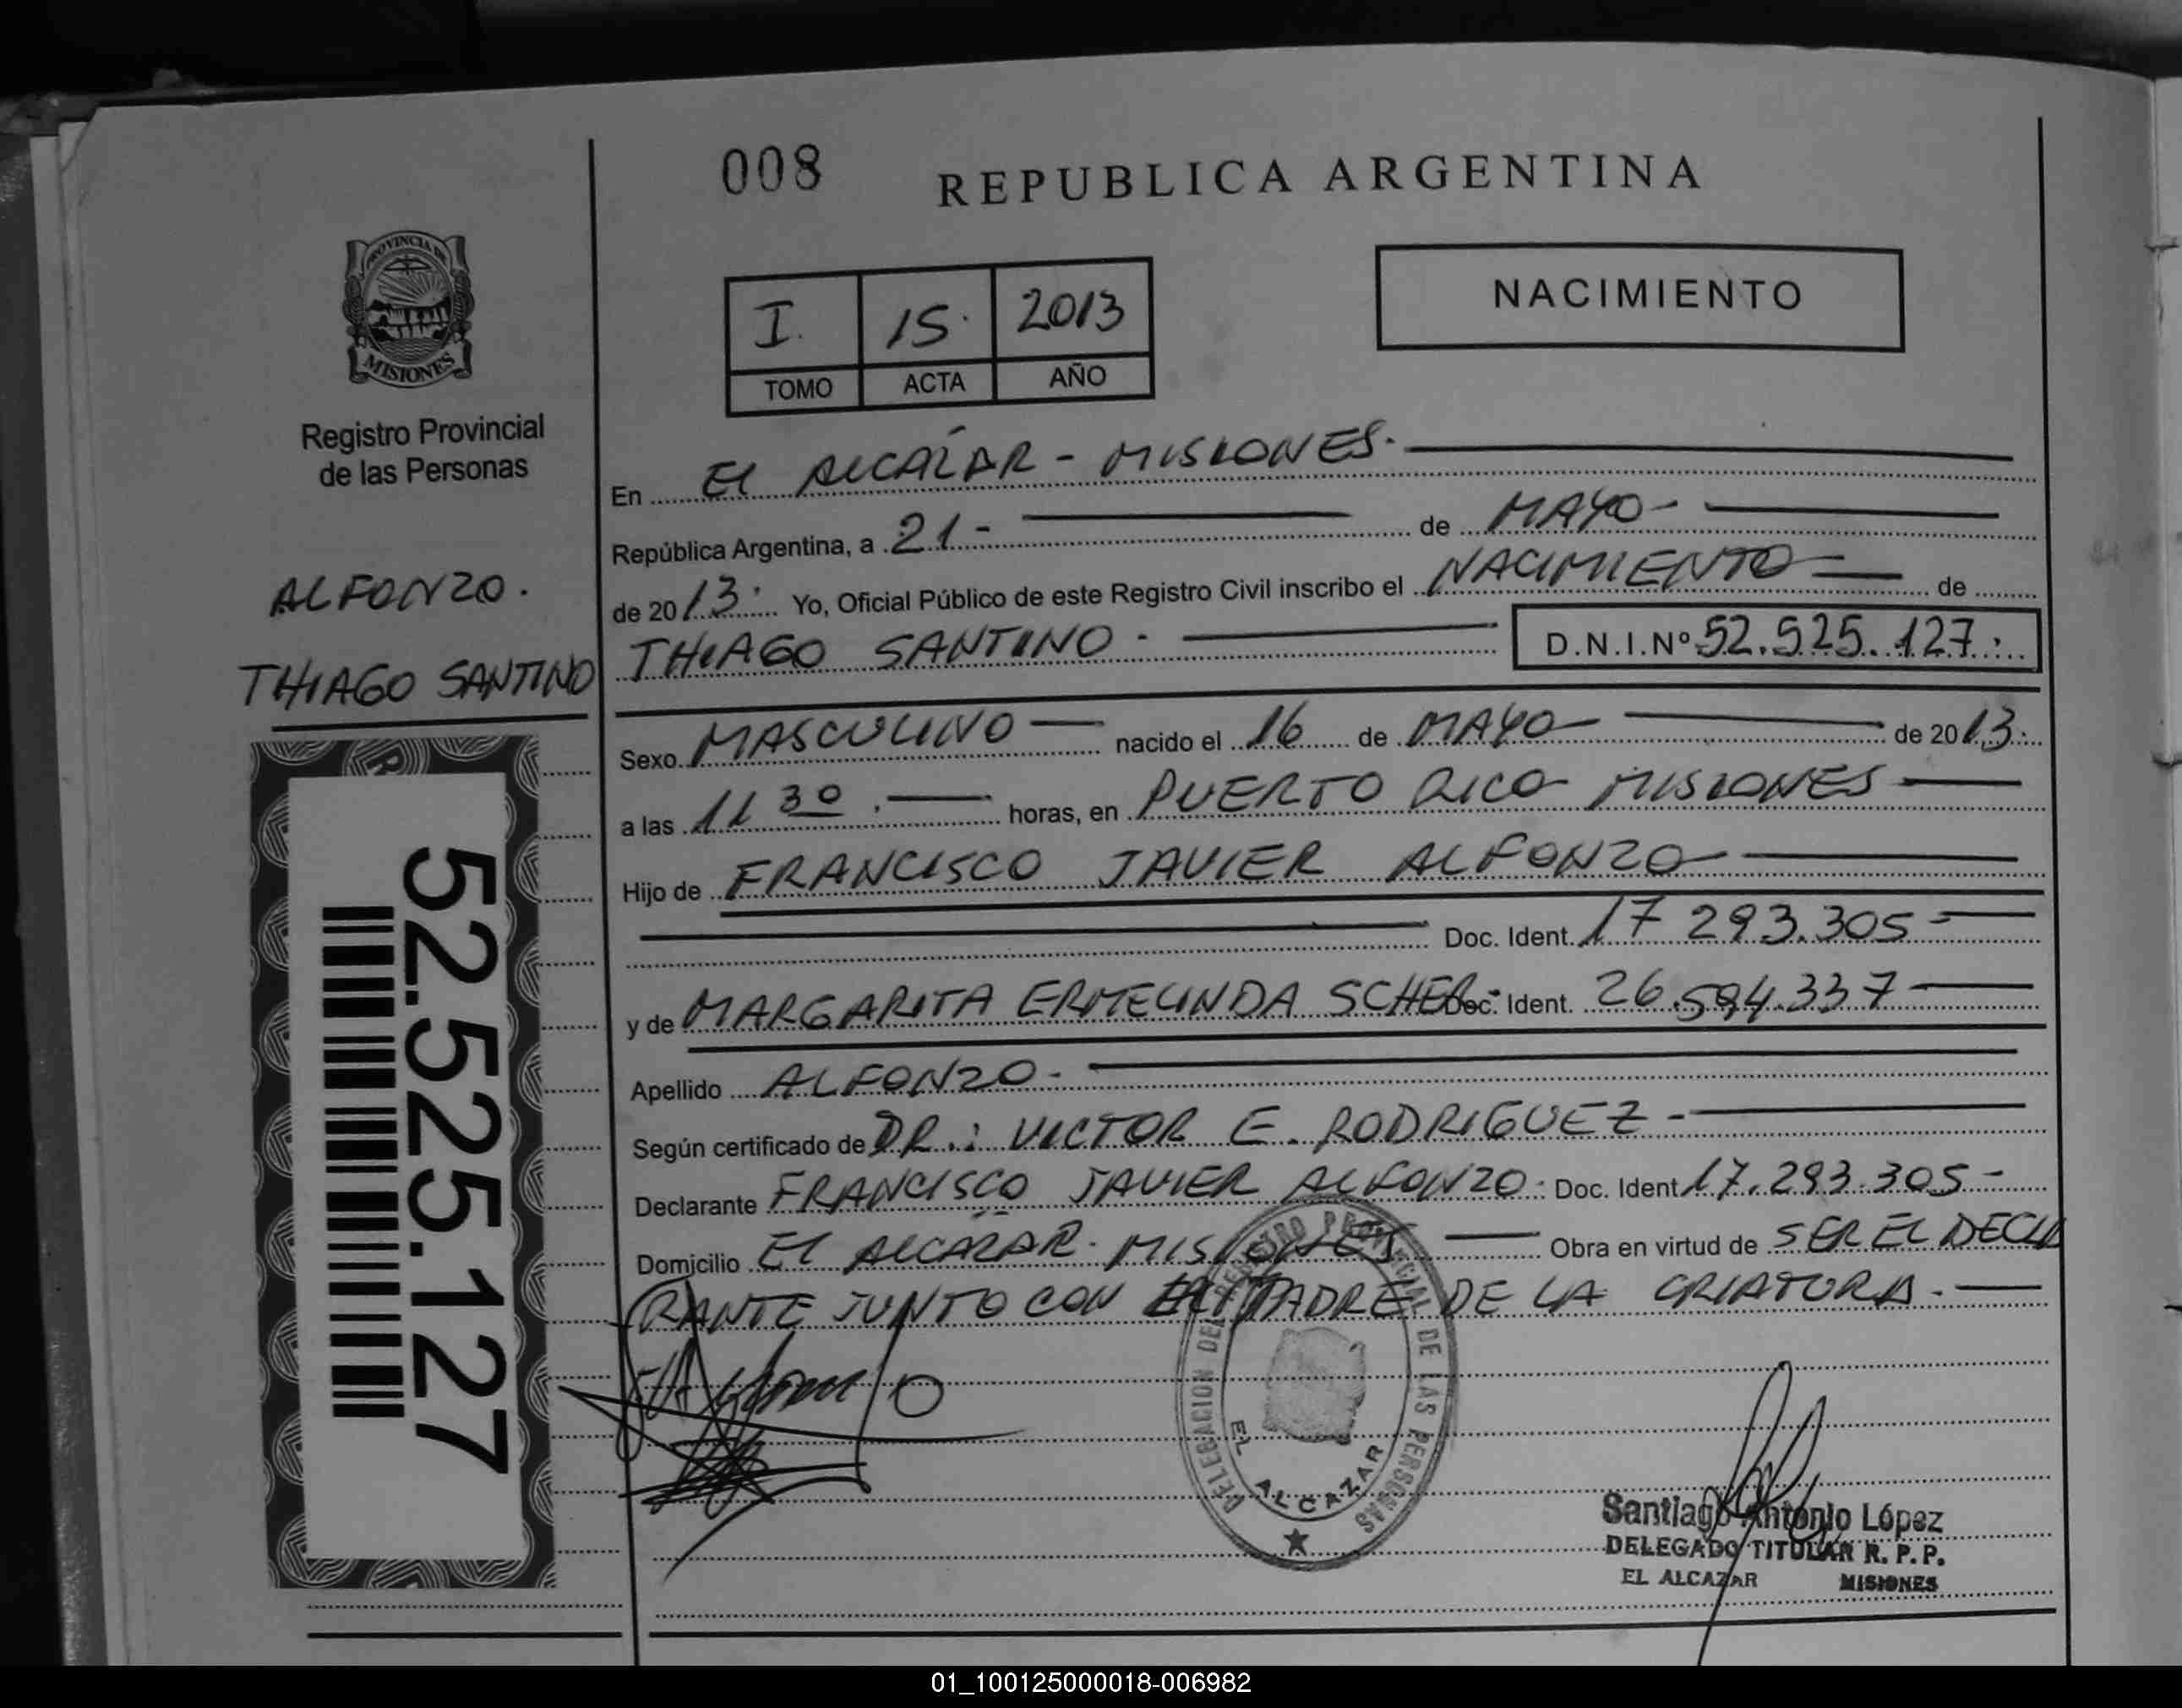 008 REPUBLICA ARGENTINA
PROVINCIA DE
MISIONES
Registro Provincial
de las Personas
ALFONZO.
THIAGO SANTINO
52.525.127
I. 15. 2013
TOMO ACTA AÑO
NACIMIENTO
En El ALCAZAR - MISIONES.
República Argentina, a 21 - de MAYO -
de 2013. Yo, Oficial Público de este Registro Civil inscribo el NACIMIENTO de
THIAGO SANTINO - D.N.I.Nº 52.525.127.
Sexo MASCULINO nacido el 16 de MAYO de 2013.
a las 11 30. horas, en PUERTO RICO MISIONES
Hijo de FRANCISCO JAVIER ALFONZO
Doc. Ident. 17 293.305 -
y de MARGARITA ERMELINDA SCHER. Doc. Ident. 26.594.337
Apellido ALFONZO -
Según certificado de DR.: VICTOR E. RODRIGUEZ -
Declarante FRANCISCO JAVIER ALFONZO. Doc. Ident 17.293.305 -
Domicilio El ALCAZAR. MISIONES Obra en virtud de SER EL DECLA
RANTE JUNTO CON MADRE DE LA CRIATURA.
DELEGACION DEL REGISTRO PROVINCIAL DE LAS PERSONAS
EL ALCAZAR
Santiago Antonio López
DELEGADO TITULAR R. P. P.
EL ALCAZAR MISIONES
01_100125000018-006982